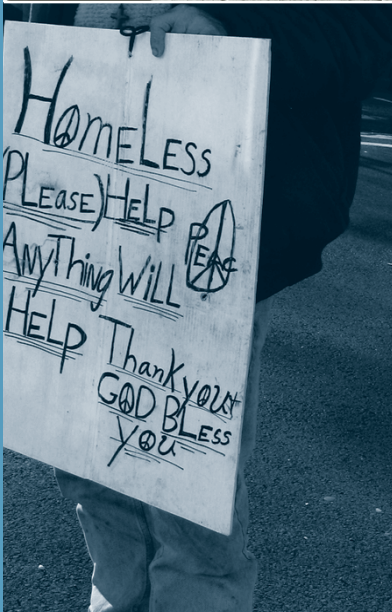 HomeLess
(PLease) HeLp
Peac
AnyThing WiLL
HeLp
Thank you
GOD BLess
you